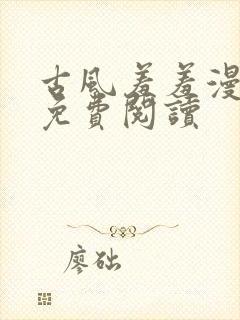 古风羞羞漫
免費閱讀
廖础